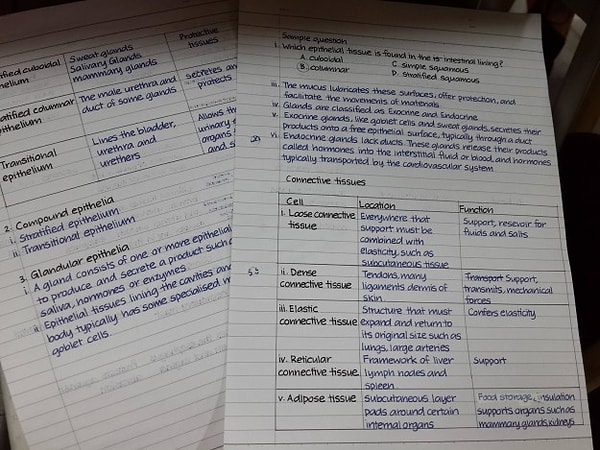 tified cuboidal
thelium
Sweat glands
Salivary Glands
mammary glands
Protective
tissues
ratified columnar
pithelium
The male urethra and
duct of some glands
secretes an
protects
Transitional
epithelium
Lines the bladder,
urethra and
urethers
Allows th
urinary
organs
and s
2. Compound epithelia
i. Stratified epithelium
ii. Transitional epithelium
3. Glandular epithelia
i. A gland consists of one or more epithelial
to produce and secrete a product such
saliva, hormones or enzymes
ii. Epithelial tissues lining the cavities and
body typically has some specialised
goblet cells.
Sample question
1. Which epithelial tissue is found in the is intestinal lining?
A. cuboidal C. simple squamous
B. columnar D. stratified squamous
iii. The mucus lubricates these surfaces, offer protection, and
facilitate the movements of materials
iv. Glands are classified as Exocrine and Endocrine
v. Exocrine glands, like goblet cells and sweat glands, secretes their
products onto a free epithelial surface, typically through a duct
vi. Endocrine glands lack ducts. These glands release their products
called hormones into the interstitial fluid or blood, and hormones
typically transported by the cardiovascular system
Connective tissues
Cell Location Function
i. Loose connective
tissue
Everywhere that
support must be
combined with
elasticity, such as
subcutaneous tissue
Support, resevoir for
fluids and salts
ii. Dense
connective tissue
Tendons, many
ligaments dermis of
skin
Transport Support,
transmits, mechanical
forces
iii. Elastic
connective tissue
Structure that must
expand and return to
its original size such as
lungs, large arteries
Confers elasticity
iv. Reticular
connective tissue
Framework of liver
lymph nodes and
spleen
Support
v. Adipose tissue
Subcutaneous layer
pads around certain
internal organs
Food storage, insulation
supports organs such as
mammary glands, kidneys